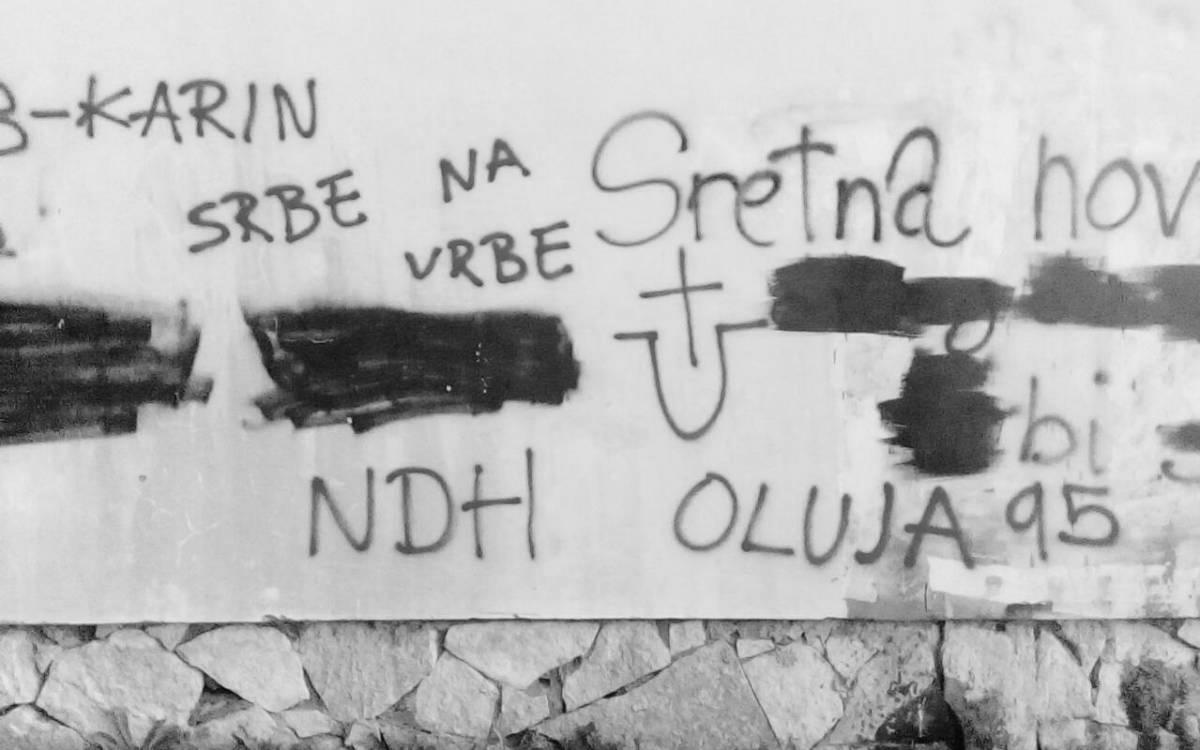 -KARIN
SRBE NA
VRBE
Sretna nov
bi
NDH
OLUJA 95